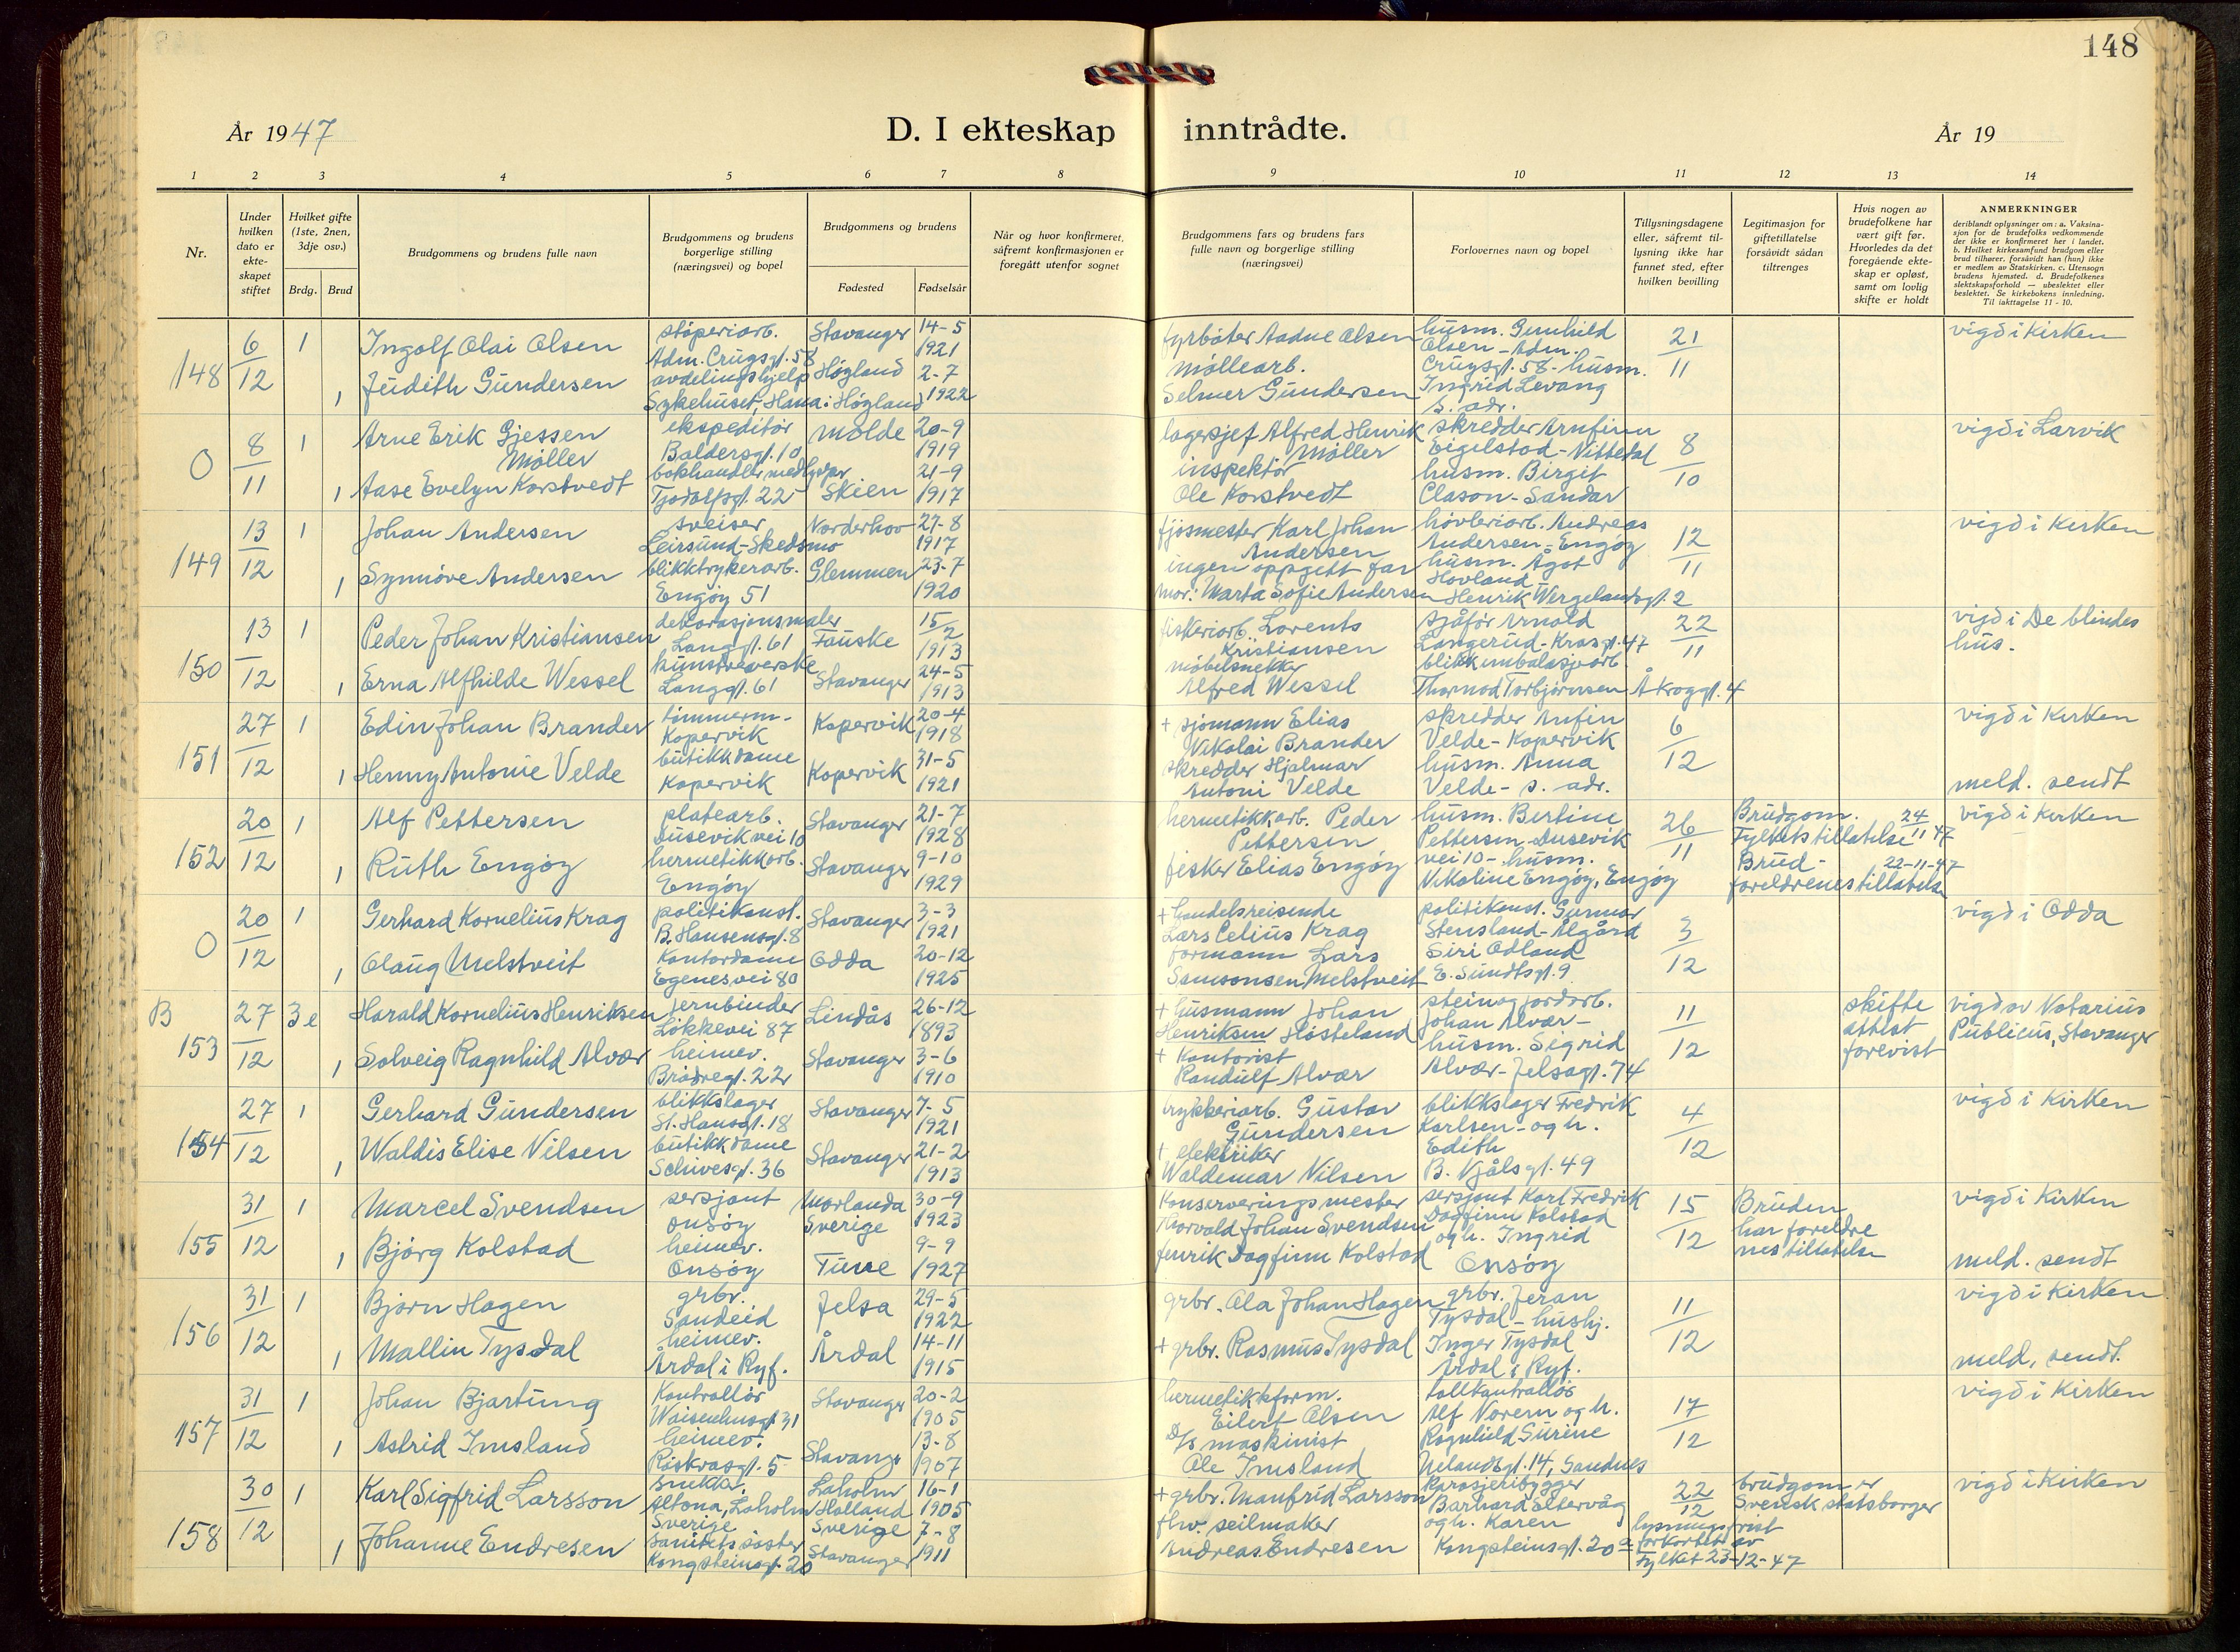 148
År 1947
D. I ekteskap inntrådte.
År 19
1 2 3 4 5 6 7 8 9 10 11 12 13 14
Nr.
Under hvilken dato er ekte-skapet stiftet
Hvilket gifte (1ste, 2nen, 3dje osv.)
Brdg. Brud
Brudgommens og brudens fulle navn
Brudgommens og brudens borgerlige stilling (næringsvei) og bopel
Brudgommens og brudens
Fødested
Fødselsår
Når og hvor konfirmeret, såfremt konfirmasjonen er foregått utenfor sognet
Brudgommens fars og brudens fars fulle navn og borgerlige stilling (næringsvei)
Forlovernes navn og bopel
Tillysningsdagene eller, såfremt til-lysning ikke har funnet sted, efter hvilken bevilling
Legitimasjon for giftetillatelse forsåvidt sådan tiltrenges
Hvis nogen av brudefolkene har vært gift før. Hvorledes da det foregående ekte-skap er opløst, samt om lovlig skifte er holdt
ANMERKNINGER
deriblandt oplysninger om: a. Vaksina-sjon for de brudefolks vedkommende der ikke er konfirmeret her i landet. b. Hvilket kirkesamfund brudgom eller brud tilhører, forsåvidt han (hun) ikke er medlem av Statskirken. c. Utensogn brudens hjemsted. d. Brudefolkenes slektskapsforhold — ubeslektet eller beslektet. Se kirkebokens innledning. Til iakttagelse 11 - 10.
148
6/12
1
Ingolf Olai Olsen
støperiarb.
Adm. Crugsgt. 58
Stavanger
14-5
1921
1
Judith Gundersen
avdelingshjelp
Sykehuset, Hana: Høgland
Høgland
2-7
1922
fyrbøter Aadne Olsen
møllearb.
Selmer Gundersen
husm. Gunhild
Olsen - Adm.
Crugsgt. 58 - husm.
Ingrid Levang
s. adr.
21/11
vigd i Kirken
0
8/11
1
Arne Erik Gjessen
Møller
ekspeditør
Baldersgt. 10
Molde
20-9
1919
1
Aase Evelyn Korstvedt
bokhandlermedhjelper
Tjodolfsgt. 22
Skien
21-9
1917
lagersjef Alfred Henrik
Møller
inspektør
Ole Korstvedt
skredder Arnfinn
Eigelstad - Nittedal
husm. Birgit
Clason - Sandar
8/10
vigd i Larvik
149
13/12
1
Johan Andersen
sveiser
Leirsund - Skedsmo
Norderhov
27-8
1917
1
Synnøve Andersen
blikktrykerarb.
Engøy 51
Glemmen
23-7
1920
fjøsmester Karl Johan
Andersen
ingen oppgitt far
mor: Marta Sofie Andersen
høvleriarb. Andreas
Andersen - Engøy
husm. Ågot
Hovland -
Henrik Wergelandsgt. 2
12/11
vigd i Kirken
150
13/12
1
Peder Johan Kristiansen
dekorasjonsmaler
Langgt. 61
Fauske
15/2
1913
1
Erna Alfhilde Wessel
kunstveverske
Langgt. 61
Stavanger
24-5
1913
fiskeriarb. Lorents
Kristiansen
møbelsnekker
Alfred Wessel
sjåfør Arnold
Langerud - Kragsgt. 47
blikkemballasjearb.
Thormod Torbjørnsen Åkroggt. 4
22/11
vigd i De blindes
hus.
151
27/12
1
Edin Johan Brander
tømmerm. -
Kopervik
Kopervik
20-4
1918
1
Henny Antonie Velde
butikkdame
Kopervik
Kopervik
31-5
1921
+ sjømann Elias
Nikolai Brander
skredder Hjalmar
Antoni Velde
skredder Anfin
Velde - Kopervik
husm. Anna
Velde - s. adr.
6/12
vigd i Kirken
meld. sendt
152
20/12
1
Alf Pettersen
platearb.
Dusevikvei 10
Stavanger
21-7
1928
1
Ruth Engøy
hermetikkarb.
Engøy
Stavanger
9-10
1929
hermetikkarb. Peder
Pettersen
fisker Elias Engøy
husm. Bertine
Pettersen - Dusevik
vei 10 - husm.
Nikoline Engøy, Engøy
26/11
Brudgom. 24/11 47
Fylkets tillatelse
Brud - 22-11-47
foreldrenes tillatelse
vigd i Kirken
0
20/12
1
Gerhard Kornelius Krag
politikonst.
B. Hansensgt. 8
Stavanger
3-3
1921
1
Olaug Melstveit
Kontordame
Egenesvei 80
Odda
20-12
1925
+ handelsreisende
Lars Celius Krag
formann Lars
Samsonsen Melstveit
politikonst. Gunnar
Stensland - Ålgård
Siri Odland
E. Sundtsgt. 9
3/12
vigd i Odda
B
153
27/12
3e
Harald Kornelius Henriksen
jernbinder
Løkkevei 87
Lindås
26-12
1893
1
Solveig Ragnhild Alvær
heimev.
Brødregt. 22
Stavanger
3-6
1910
+ husmann Johan
Henriksen Høsteland
+ Kontorist
Randulf Alvær
stein og jordarb.
Johan Alvær -
husm. Sigrid
Alvær - Jelsagt. 74
11/12
skifte
attest
forevist
vigd av Notarius
Publicus, Stavanger
154
27/12
1
Gerhard Gundersen
blikkslager
St. Hansgt. 18
Stavanger
7-5
1921
1
Waldis Elise Nilsen
butikkdame
Schivesgt. 36
Stavanger
21-2
1913
trykkeriarb. Gustav
Gundersen
+ elektriker
Waldemar Nilsen
blikkslager Fredrik
Karlsen - og h.
Edith
B. Njålsgt. 49
4/12
vigd i Kirken
155
31/12
1
Marcel Svendsen
sersjant
Onsøy
Morlanda
Sverige
30-9
1923
1
Bjørg Kolstad
heimev.
Onsøy
Tune
9-9
1927
Konserveringsmester
Thorvald Johan Svendsen
fenrik Dagfinn Kolstad
sersjant Karl Fredrik
Dagfinn Kolstad
og h. Ingrid
Onsøy
15/12
Bruden
har foreldre
nes tillatelse
vigd i Kirken
meld. sendt
156
31/12
1
Bjørn Hagen
grbr.
Sandeid
Jelsa
29-5
1922
1
Mallin Tysdal
heimev.
Årdal i Ryf.
Årdal
14-11
1915
grbr. Ola Johan Hagen
+ grbr. Rasmus Tysdal
grbr. Jeran
Tysdal - hushj.
Inger Tysdal
Årdal i Ryf.
11/12
vigd i Kirken
meld. sendt.
157
31/12
1
Johan Bjartung
Kontrollør
Waisenhusgt. 31
Stavanger
20-2
1905
1
Astrid Imsland
heimev.
Røskvasgt. 5
Stavanger
13-8
1907
hermetikkform.
Eilert Olsen
D/s maskinist
Ole Imsland
tollkontrollør
Alf Norem og h.
Ragnhild Surine
Nelandsgt. 14, Sandnes
17/12
vigd i Kirken
158
30/12
1
Karl Sigfrid Larsson
snekker
Altona, Laholm
Sverige
Laholm
Halland
Sverige
16-1
1905
1
Johanne Endresen
Sanitetssøster
Kongsteinsgt. 20
Stavanger
7-8
1911
+ grbr. Manfrid Larsson
fhv. seilmaker
Andreas Endresen
Karosjeribygger
Barhard Eltervåg
og h. Karen
Kongsteinsgt. 20a
22/12
lysningsfrist
forkortet av
Fylket 23-12-47
brudgom er
Svensk statsborger
vigd i Kirken